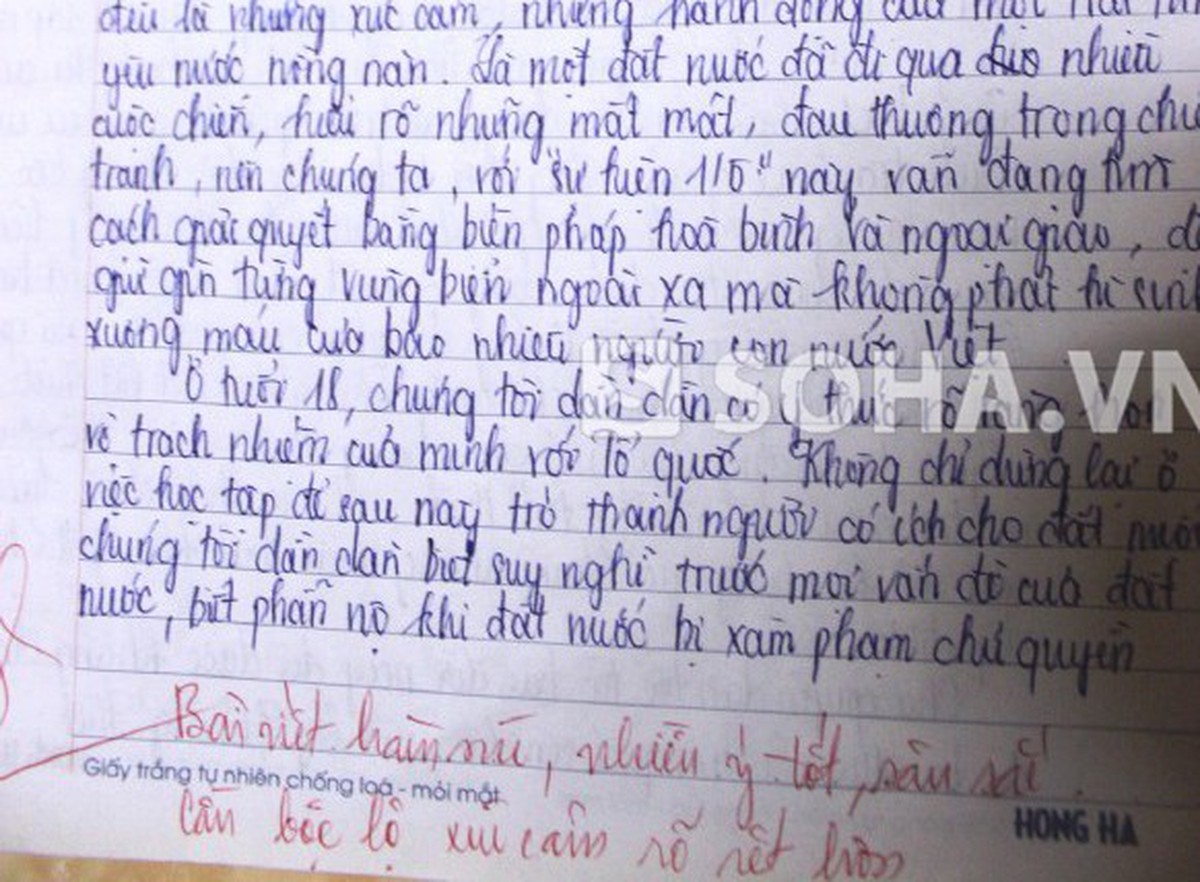 đều là những xúc cảm, những hành động của một
yêu nước nồng nàn. Là một đất nước đã đi qua nhiều
cuộc chiến, hiểu rõ những mất mát, đau thương trong
tranh, nên chúng ta, với "sự kiện 1/5" này vẫn đang tìm
cách giải quyết bằng biện pháp hoà bình và ngoại giao,
giữ gìn từng vùng biển ngoài xa mà không phải hi sinh
xương máu của bao nhiêu người con nước Việt
SOHA.VN
Ở tuổi 18, chúng tôi dần dần có ý thức rõ ràng hơn
về trách nhiệm của mình với Tổ quốc. Không chỉ dừng lại ở
việc học tập để sau này trở thành người có ích cho đất nước
chúng tôi dần dần biết suy nghĩ trước mọi vấn đề của đất
nước, biết phẫn nộ khi đất nước bị xâm phạm chủ quyền
Bài viết hàm, nhiều ý tốt, sâu sắc.
Giấy trắng tự nhiên chống loá - mỏi mắt
HONG HA
Cần bộc lộ xúc cảm rõ rệt hơn